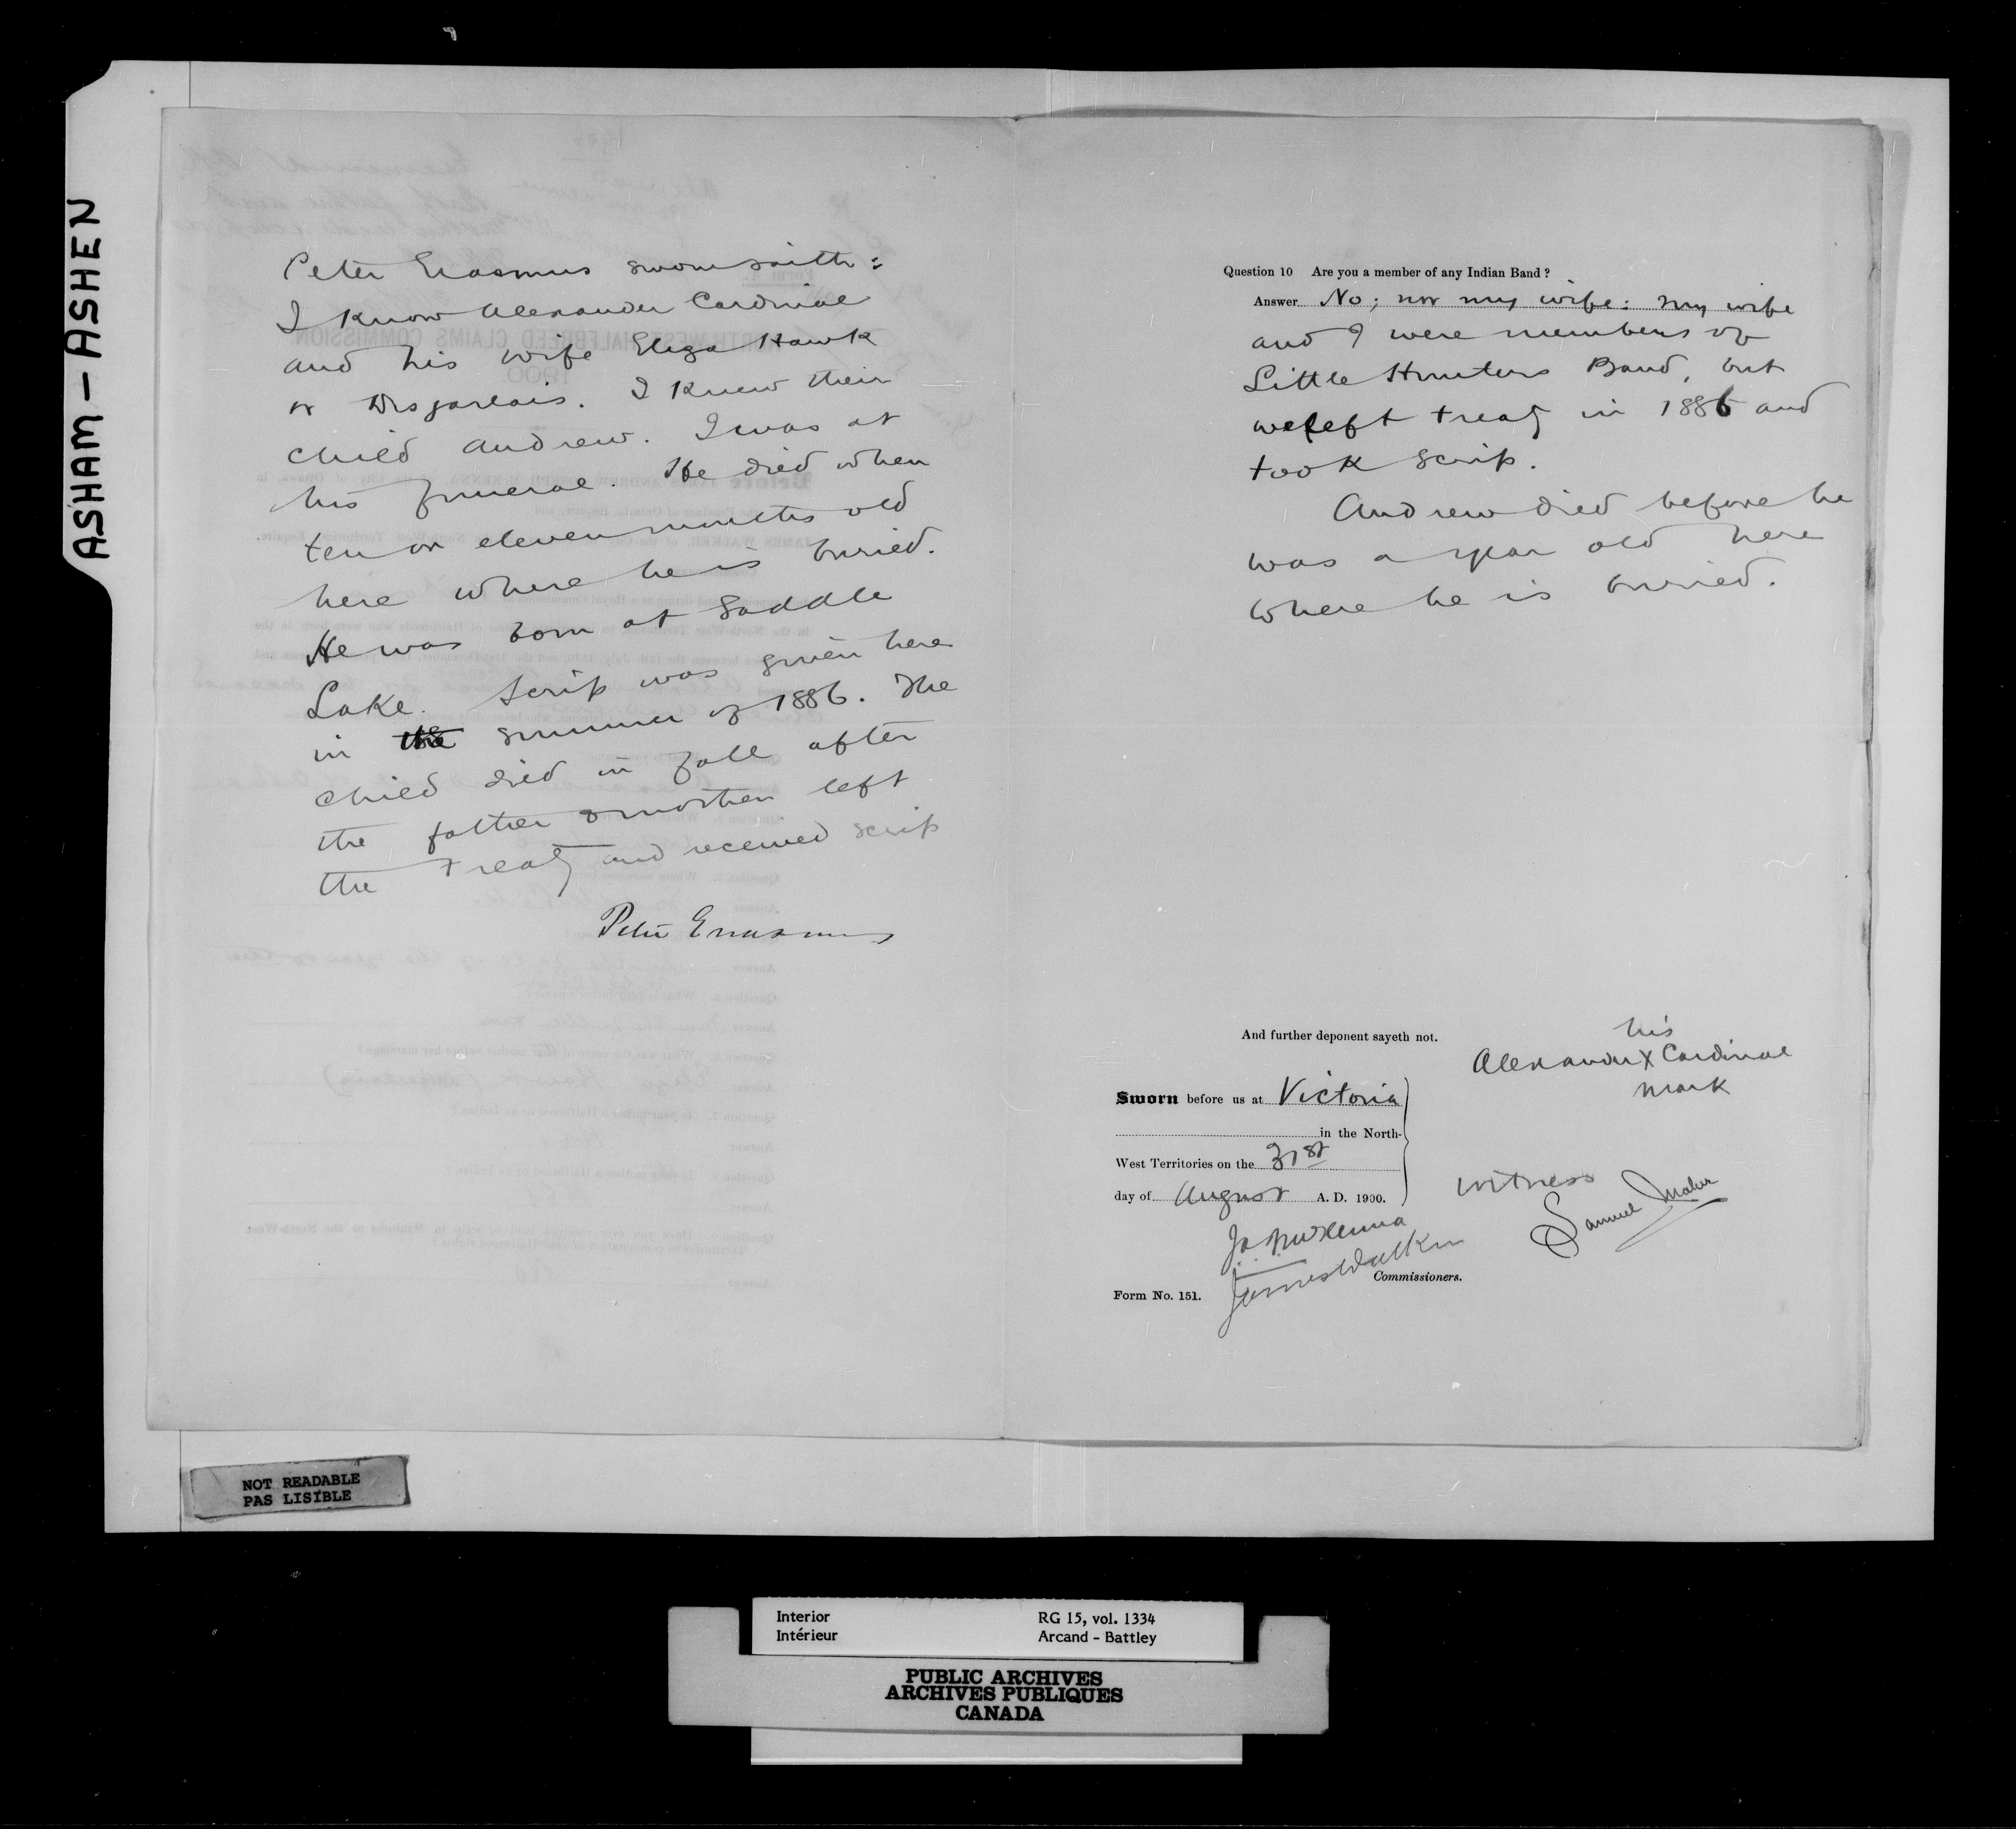 ASHAM - ASHEN
Peter Erasmus sworn saith:
I know Alexander Cardinal
and his wife Eliza Hawk
or Desjarlais. I knew their
child Andrew. I was at
his funeral. He died when
ten or eleven months old
here where he is buried.
He was born at Saddle
Lake. Scrip was given here
in the summer of 1886. The
child died in fall after
the father & mother left
the treaty and received scrip
Peter Erasmus
Question 10 Are you a member of any Indian Band?
Answer No; nor my wife: my wife
and I were members of
Little Hunters Band, but
we left treaty in 1886 and
took scrip.
Andrew died before he
was a year old here
where he is buried.
And further deponent sayeth not.
his
Alexander X Cardinal
mark
Sworn before us at Victoria
in the North-
West Territories on the 31st
day of August A. D. 1900.
witness
Samuel
J. A. J. McKenna
James Walker
Commissioners.
Form No. 151.
NOT READABLE
PAS LISIBLE
Interior RG 15, vol. 1334
Intérieur Arcand - Battley
PUBLIC ARCHIVES
ARCHIVES PUBLIQUES
CANADA